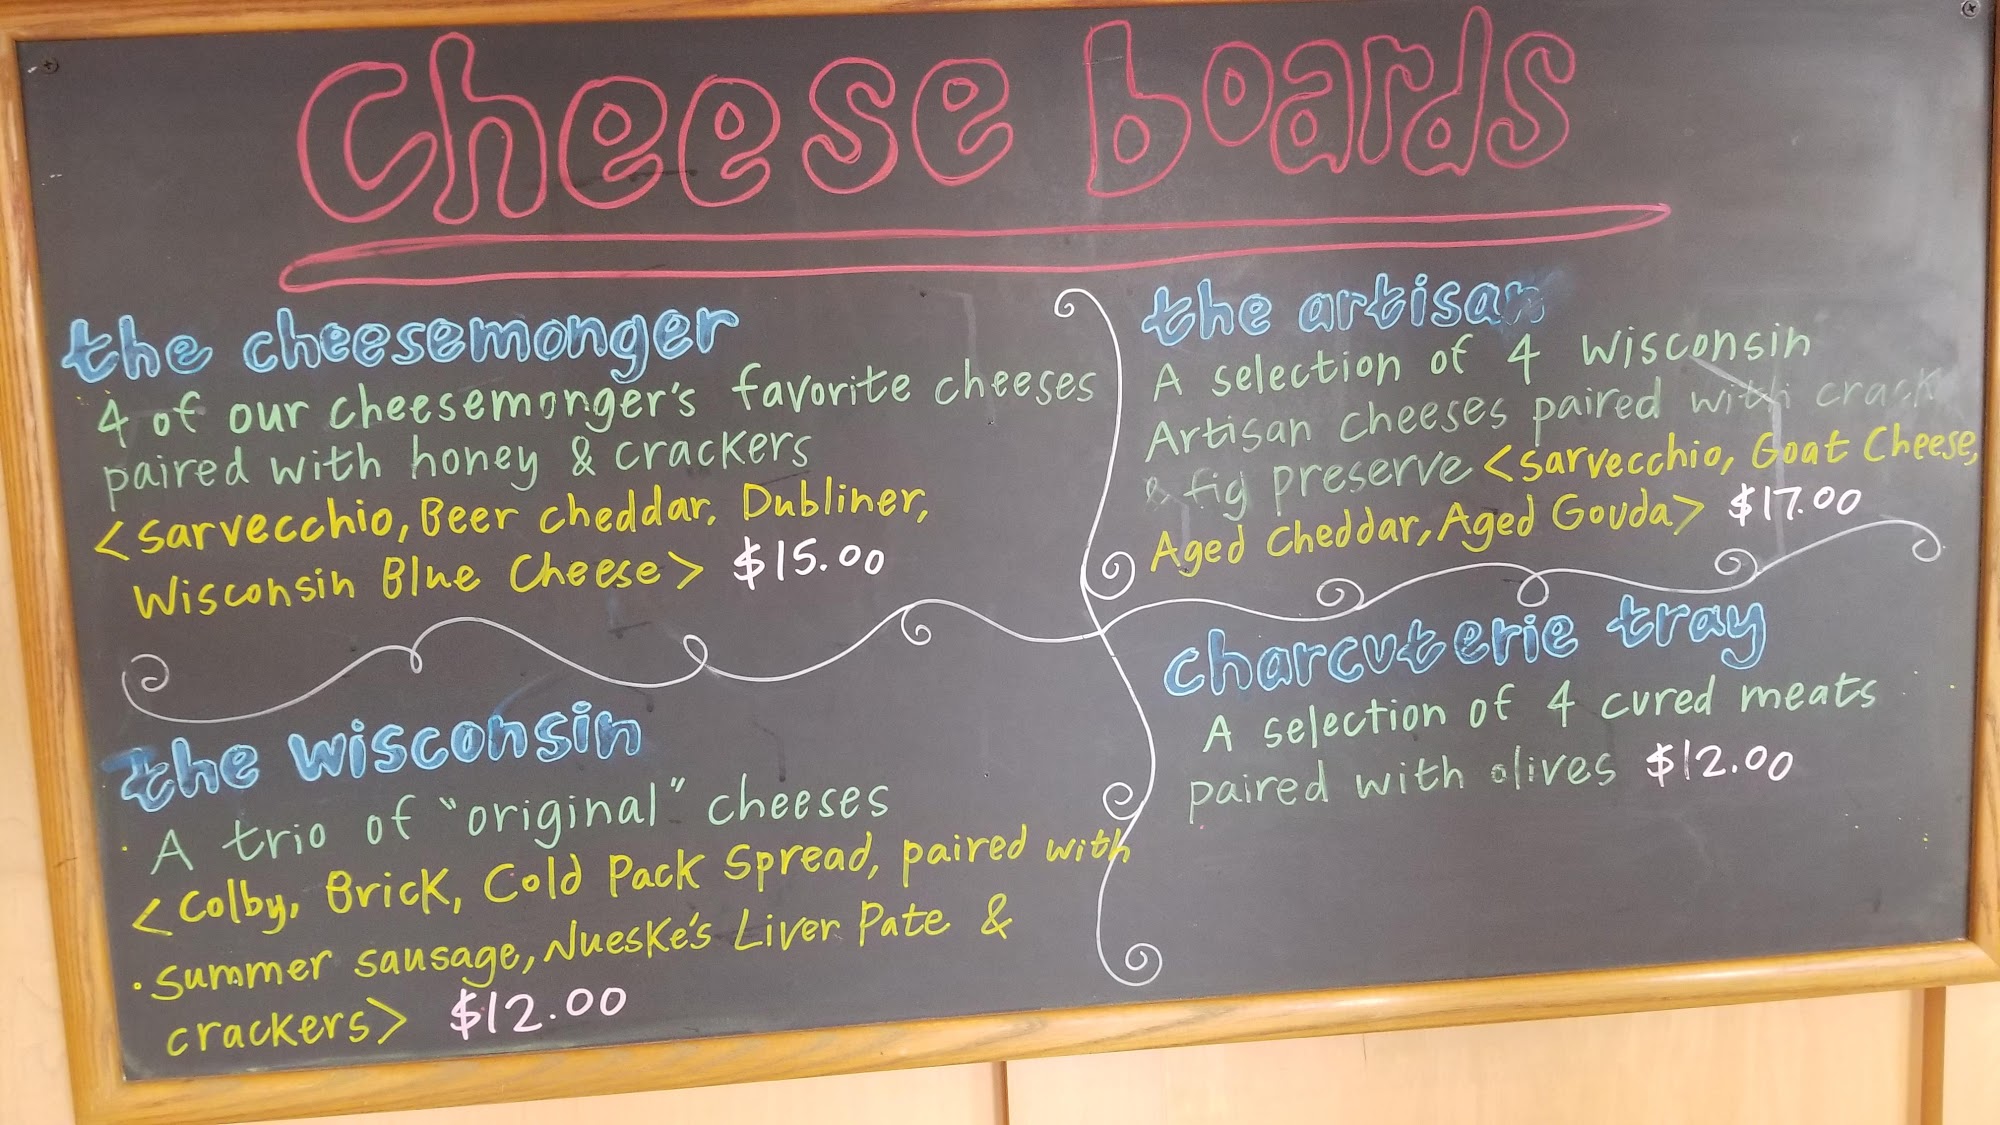 Cheese boards
the cheesemonger
4 of our cheesemonger's favorite cheeses
paired with honey & crackers
<sarvecchio, Beer cheddar, Dubliner,
Wisconsin Blue Cheese> $15.00
the artisan
A selection of 4 Wisconsin
Artisan cheeses paired with crack
& fig preserve <sarvecchio, Goat Cheese,
Aged Cheddar, Aged Gouda> $17.00
the wisconsin
A trio of "original" cheeses
<Colby, Brick, Cold Pack Spread, paired with
summer sausage, Nueske's Liver Pate &
crackers> $12.00
charcuterie tray
A selection of 4 cured meats
paired with olives $12.00